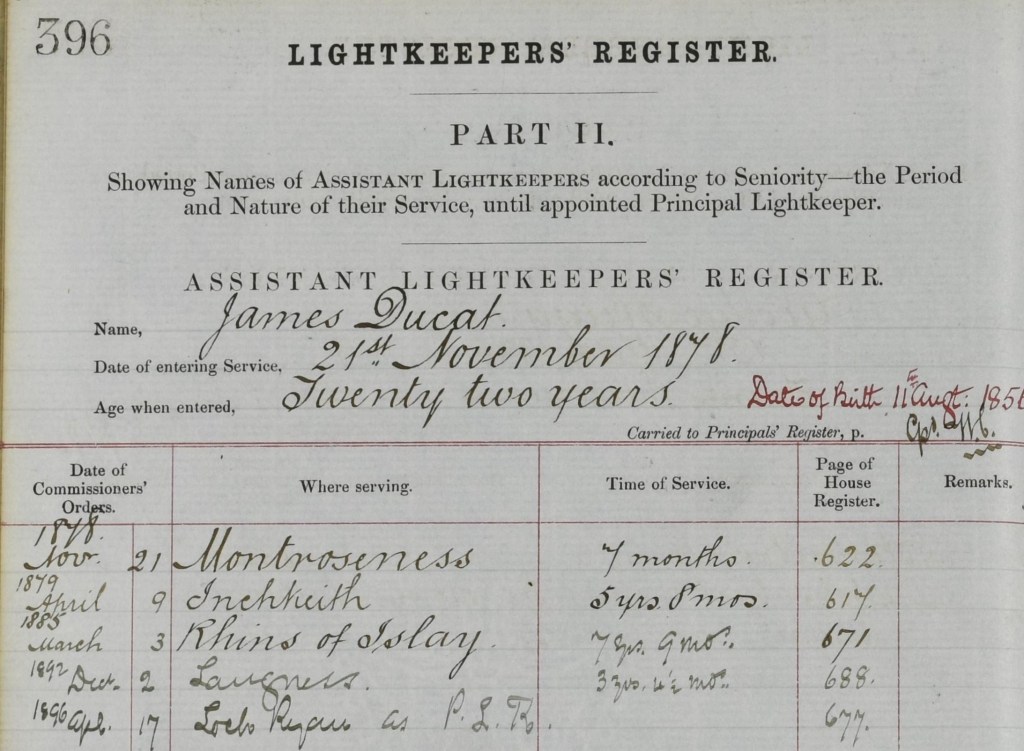 396
LIGHTKEEPERS' REGISTER.
PART II.
Showing Names of ASSISTANT LIGHTKEEPERS according to Seniority—the Period
and Nature of their Service, until appointed Principal Lightkeeper.
ASSISTANT LIGHTKEEPERS' REGISTER.
Name, James Ducat.
Date of entering Service, 21st November 1878.
Age when entered, Twenty two years. Date of Birth 11th Augt. 1856
Carried to Principals' Register, p.
Date of Commissioners' Orders. Where serving. Time of Service. Page of House Register. Remarks.
1878.
Nov. 21 Montroseness 7 months. 622
1879
April 9 Inchkeith 5 yrs. 8 mos. 617.
1885
March 3 Rhins of Islay. 7 yrs. 9 mos. 671
1892 Dect. 2 Langness. 3 yrs. 4½ mos. 688.
1896 Apl. 17 Loch Ryan as P.L.K. 677.